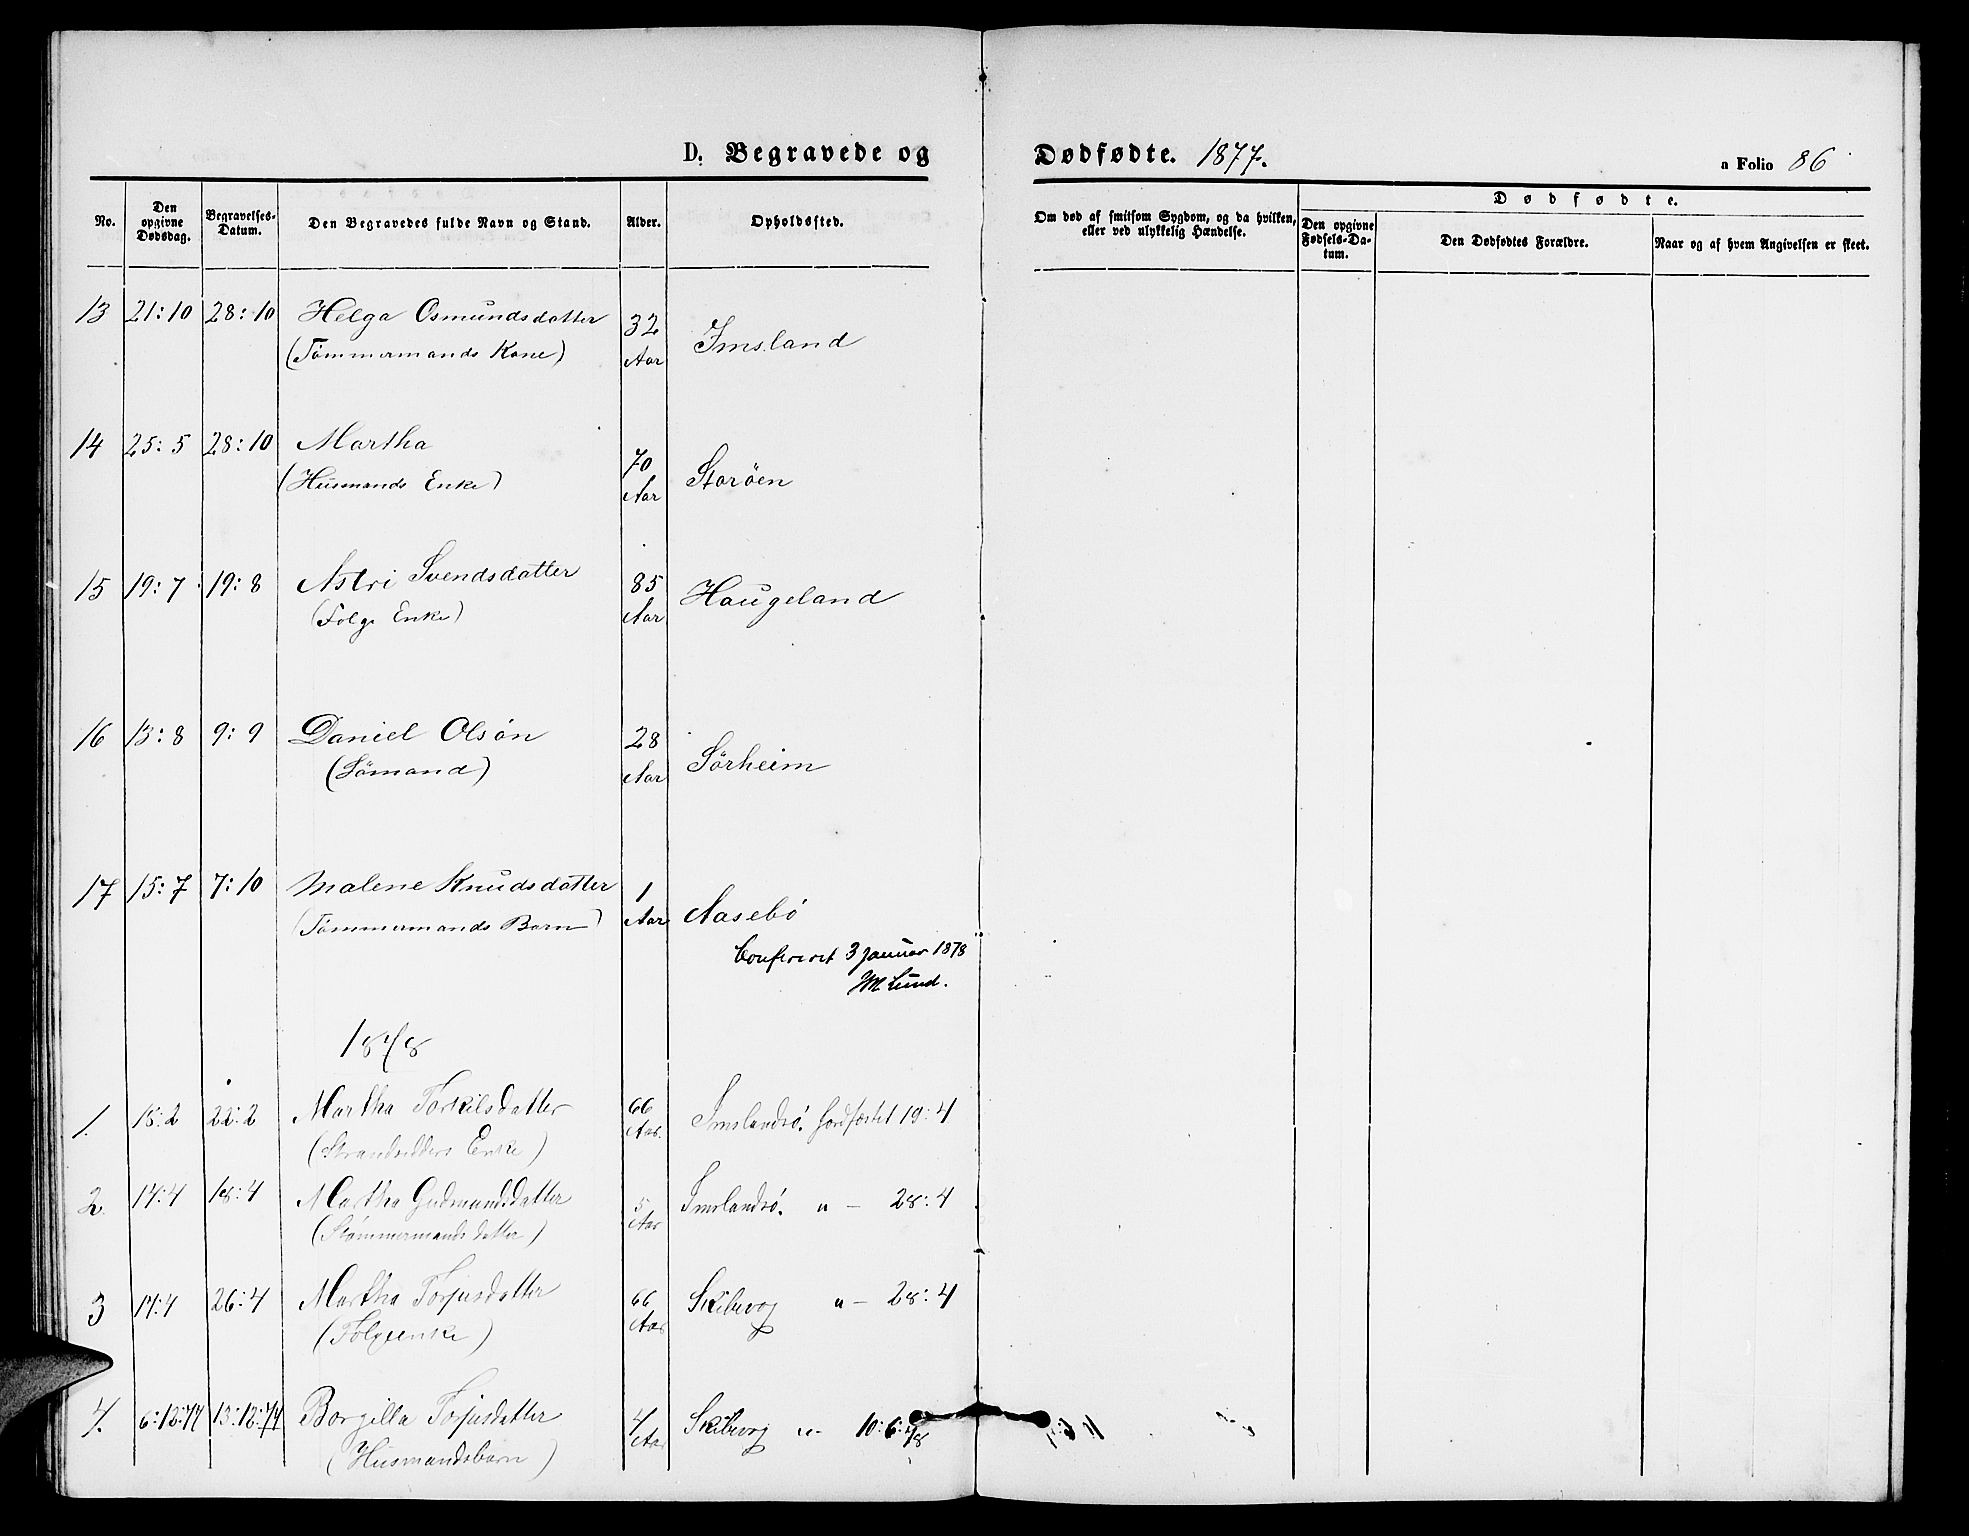 D. Begravede og Dødfødte. 1877.
a Folio 86
No.
Den opgivne Dødsdag.
Begravelses-Datum.
Den Begravedes fulde Navn og Stand.
Alder.
Opholdssted.
Om død af smitsom Sygdom, og da hvilken, eller ved ulykkelig Hændelse.
Dødfødte.
Den opgivne Fødsels-Datum.
Den Dødfødtes Forældre.
Naar og af hvem Angivelsen er skeet.
13 21:10 28:10 Helga Osmundsdatter 32 Aar Imsland
(Tømmermands Kone)
14 25:5 28:10 Martha 70 Aar Storøen
(Husmands Enke)
15 19:7 19:8 Astri Svendsdatter 85 Aar Haugeland
(Folge Enke)
16 13:8 9:9 Daniel Olsøn 28 Aar Sørheim
(Sømand)
17 15:7 7:10 Malene Knudsdatter 1 Aar Aasebø
(Tømmermands Barn)
Confereret 3 Januar 1878
M Lund.
1878
1. 15:2 22:2 Martha Torkilsdatter 66 Aar. Imslandsø. Jordfæstet 19:4
(Strandsidders Enke)
2. 14:4 18:4 Martha Gudmundsdatter 5 Aar Imslandsø. " — 28:4
(Tømmermands datter)
3 17:4 26:4 Martha Torjusdatter 66 Aar Skibevog " — 28:4
(Folgeenke)
4. 6:12:77 13:12:77 Borgilla Torjusdatter 4 Aar Skibevog " - 10:6:78
(Husmandsbarn)